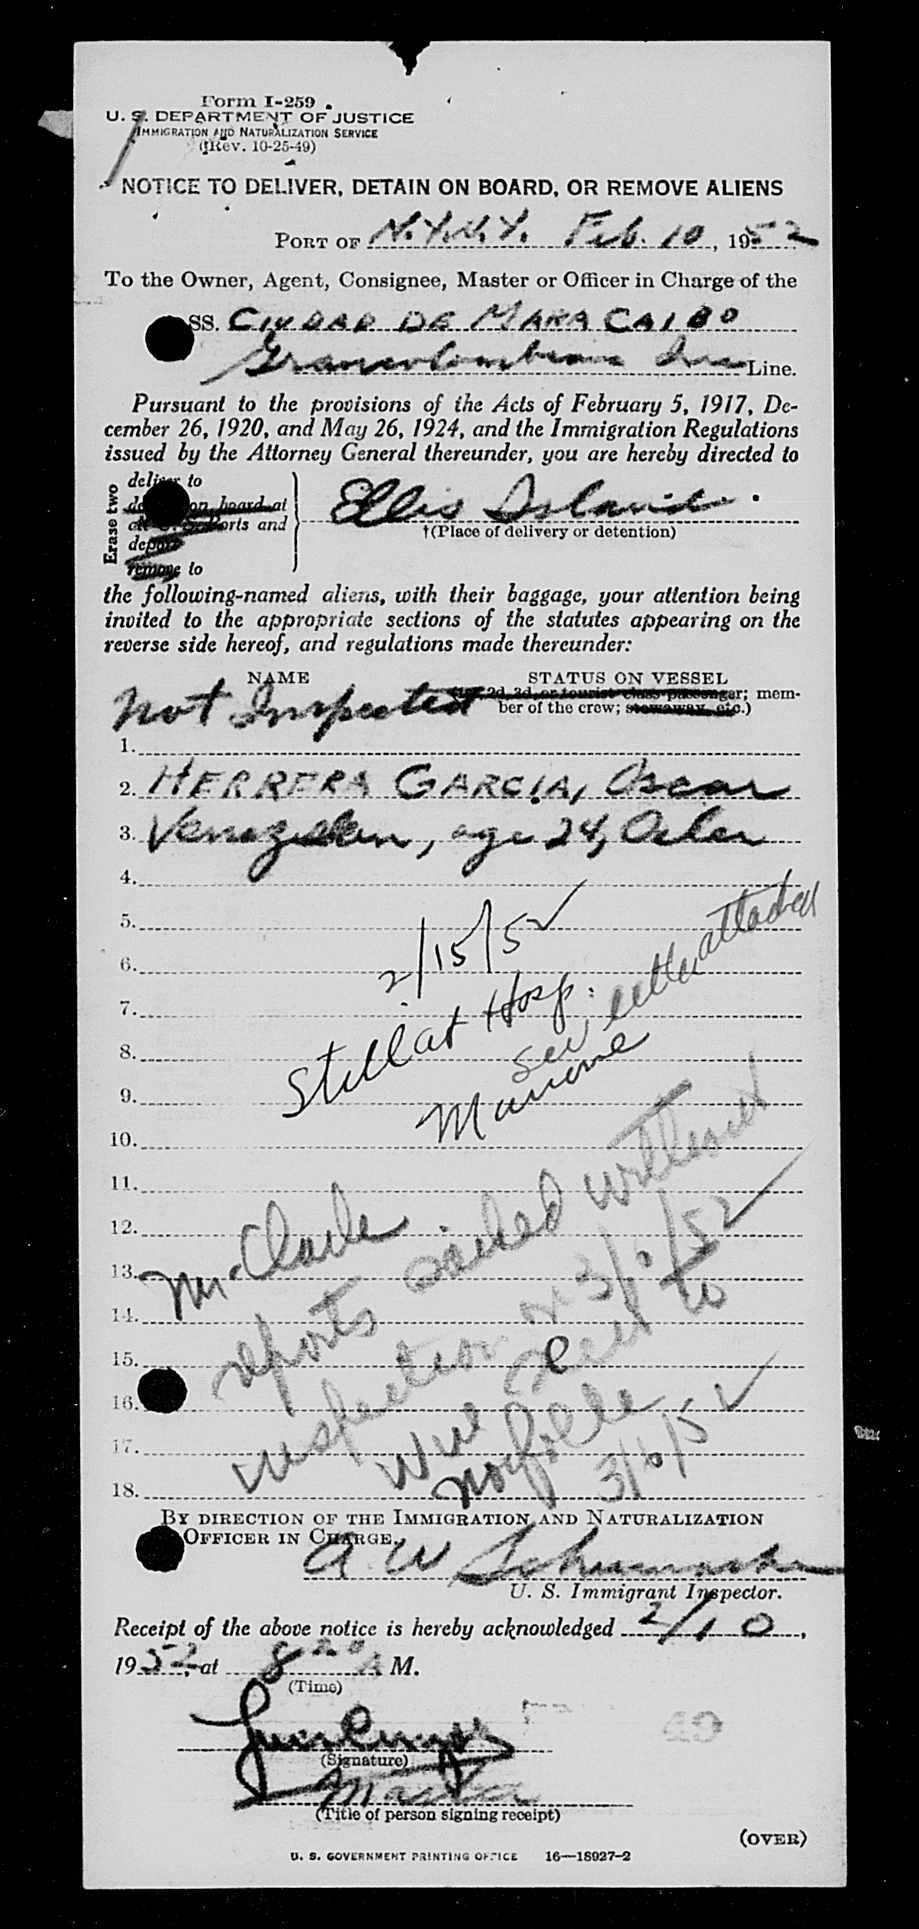 Form I-259
U. S. DEPARTMENT OF JUSTICE
IMMIGRATION AND NATURALIZATION SERVICE
(Rev. 10-25-49)
NOTICE TO DELIVER, DETAIN ON BOARD, OR REMOVE ALIENS
PORT OF N.Y.N.Y. Feb. 10, 1952
To the Owner, Agent, Consignee, Master or Officer in Charge of the
SS. CIUDAD DE MARACAIBO
Grancolombiana Inc Line.
Pursuant to the provisions of the Acts of February 5, 1917, De-
cember 26, 1920, and May 26, 1924, and the Immigration Regulations
issued by the Attorney General thereunder, you are hereby directed to
Erase two
deliver to
on board at
ports and
Ellis Island.
†(Place of delivery or detention)
remove to
the following-named aliens, with their baggage, your attention being
invited to the appropriate sections of the statutes appearing on the
reverse side hereof, and regulations made thereunder:
NAME STATUS ON VESSEL
2d, 3d, or tourist class passenger; mem-
ber of the crew; stowaway, etc.)
Not Inspected
1.
2. HERRERA GARCIA, Oscar
3. Venezuelan, age 24, Oiler
4.
5.
2/15/52
6.
7.
Still at Hosp.
see letter attached
8.
9.
10.
11.
12.
Mr. Clarke
13.
reports sailed without
14.
inspection on 3/6/52
15.
Will send to
16.
Norfolk
17.
3/6/52
18.
BY DIRECTION OF THE IMMIGRATION AND NATURALIZATION
OFFICER IN CHARGE.
A W Schumacher
U. S. Immigrant Inspector.
Receipt of the above notice is hereby acknowledged 2/10,
1952, at 8 20 A M.
(Time)
(Signature)
Master
(Title of person signing receipt)
(OVER)
U. S. GOVERNMENT PRINTING OFFICE 16—18927-2